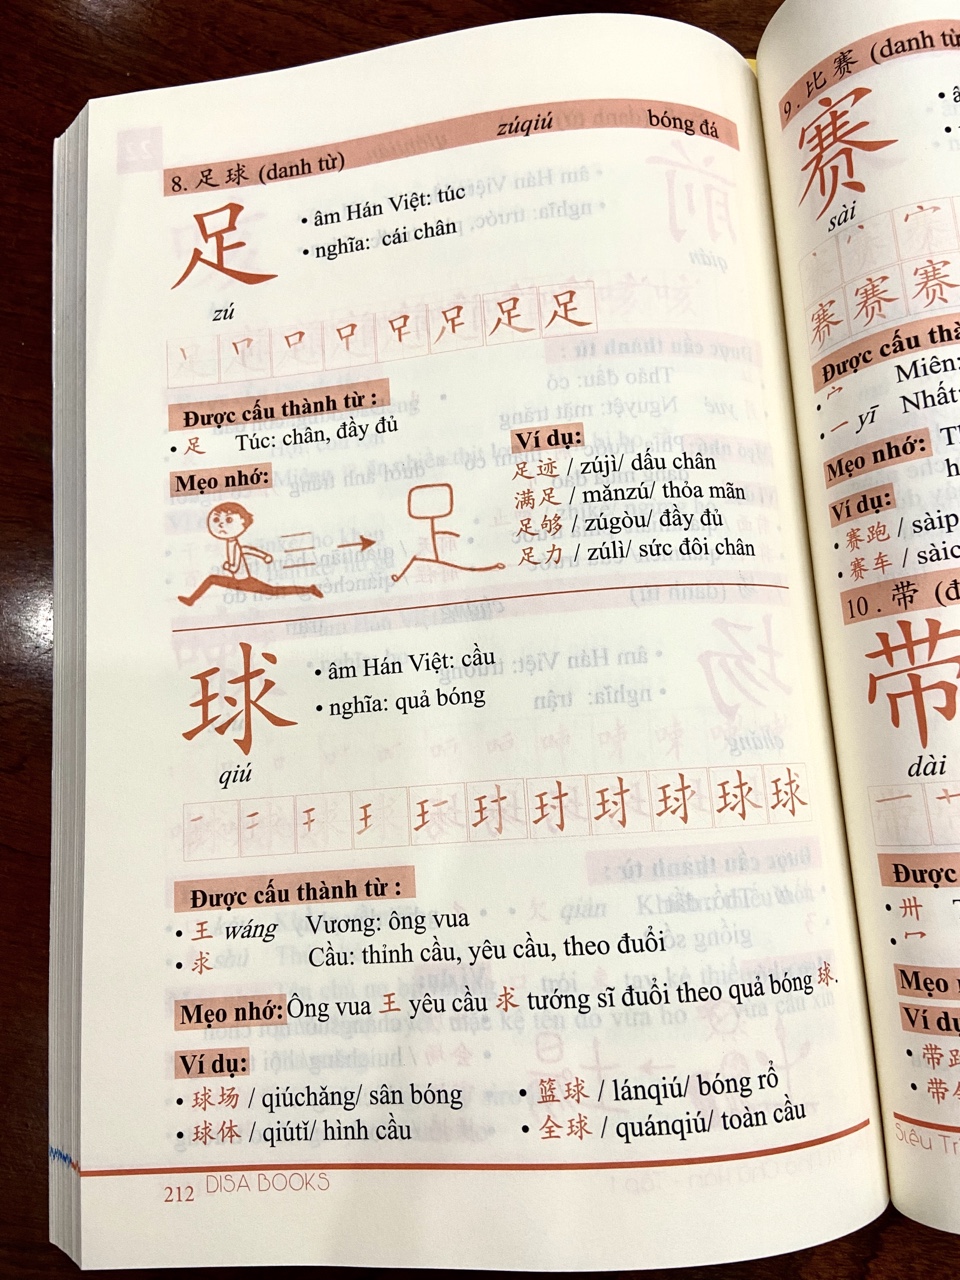 8. 足球 (danh từ) zúqiú bóng đá
足
• âm Hán Việt: túc
• nghĩa: cái chân
zú
足 足
Được cấu thành từ :
• 足 Túc: chân, đầy đủ
Mẹo nhớ:
Ví dụ:
足迹 / zújì/ dấu chân
满足 / mǎnzú/ thỏa mãn
足够 / zúgòu/ đầy đủ
足力 / zúlì/ sức đôi chân
球
• âm Hán Việt: cầu
• nghĩa: quả bóng
qiú
球 球
Được cấu thành từ :
• 王 wáng Vương: ông vua
• 求 Cầu: thỉnh cầu, yêu cầu, theo đuổi
Mẹo nhớ: Ông vua 王 yêu cầu 求 tướng sĩ đuổi theo quả bóng 球.
Ví dụ:
• 球场 / qiúchǎng/ sân bóng
• 球体 / qiútǐ/ hình cầu
• 篮球 / lánqiú/ bóng rổ
• 全球 / quánqiú/ toàn cầu
212 DISA BOOKS
9. 比赛 (danh từ
赛
sài
赛 赛 赛
Được cấu
• 宀 Miên:
• 一 yī Nhất:
Mẹo nhớ:
Ví dụ:
• 赛跑 / sàip
• 赛车 / sàic
10 . 带 (đ
带
dài
Được
• 卅
• 冖
Mẹo
Ví dụ
• 带
• 带
Siêu Tr